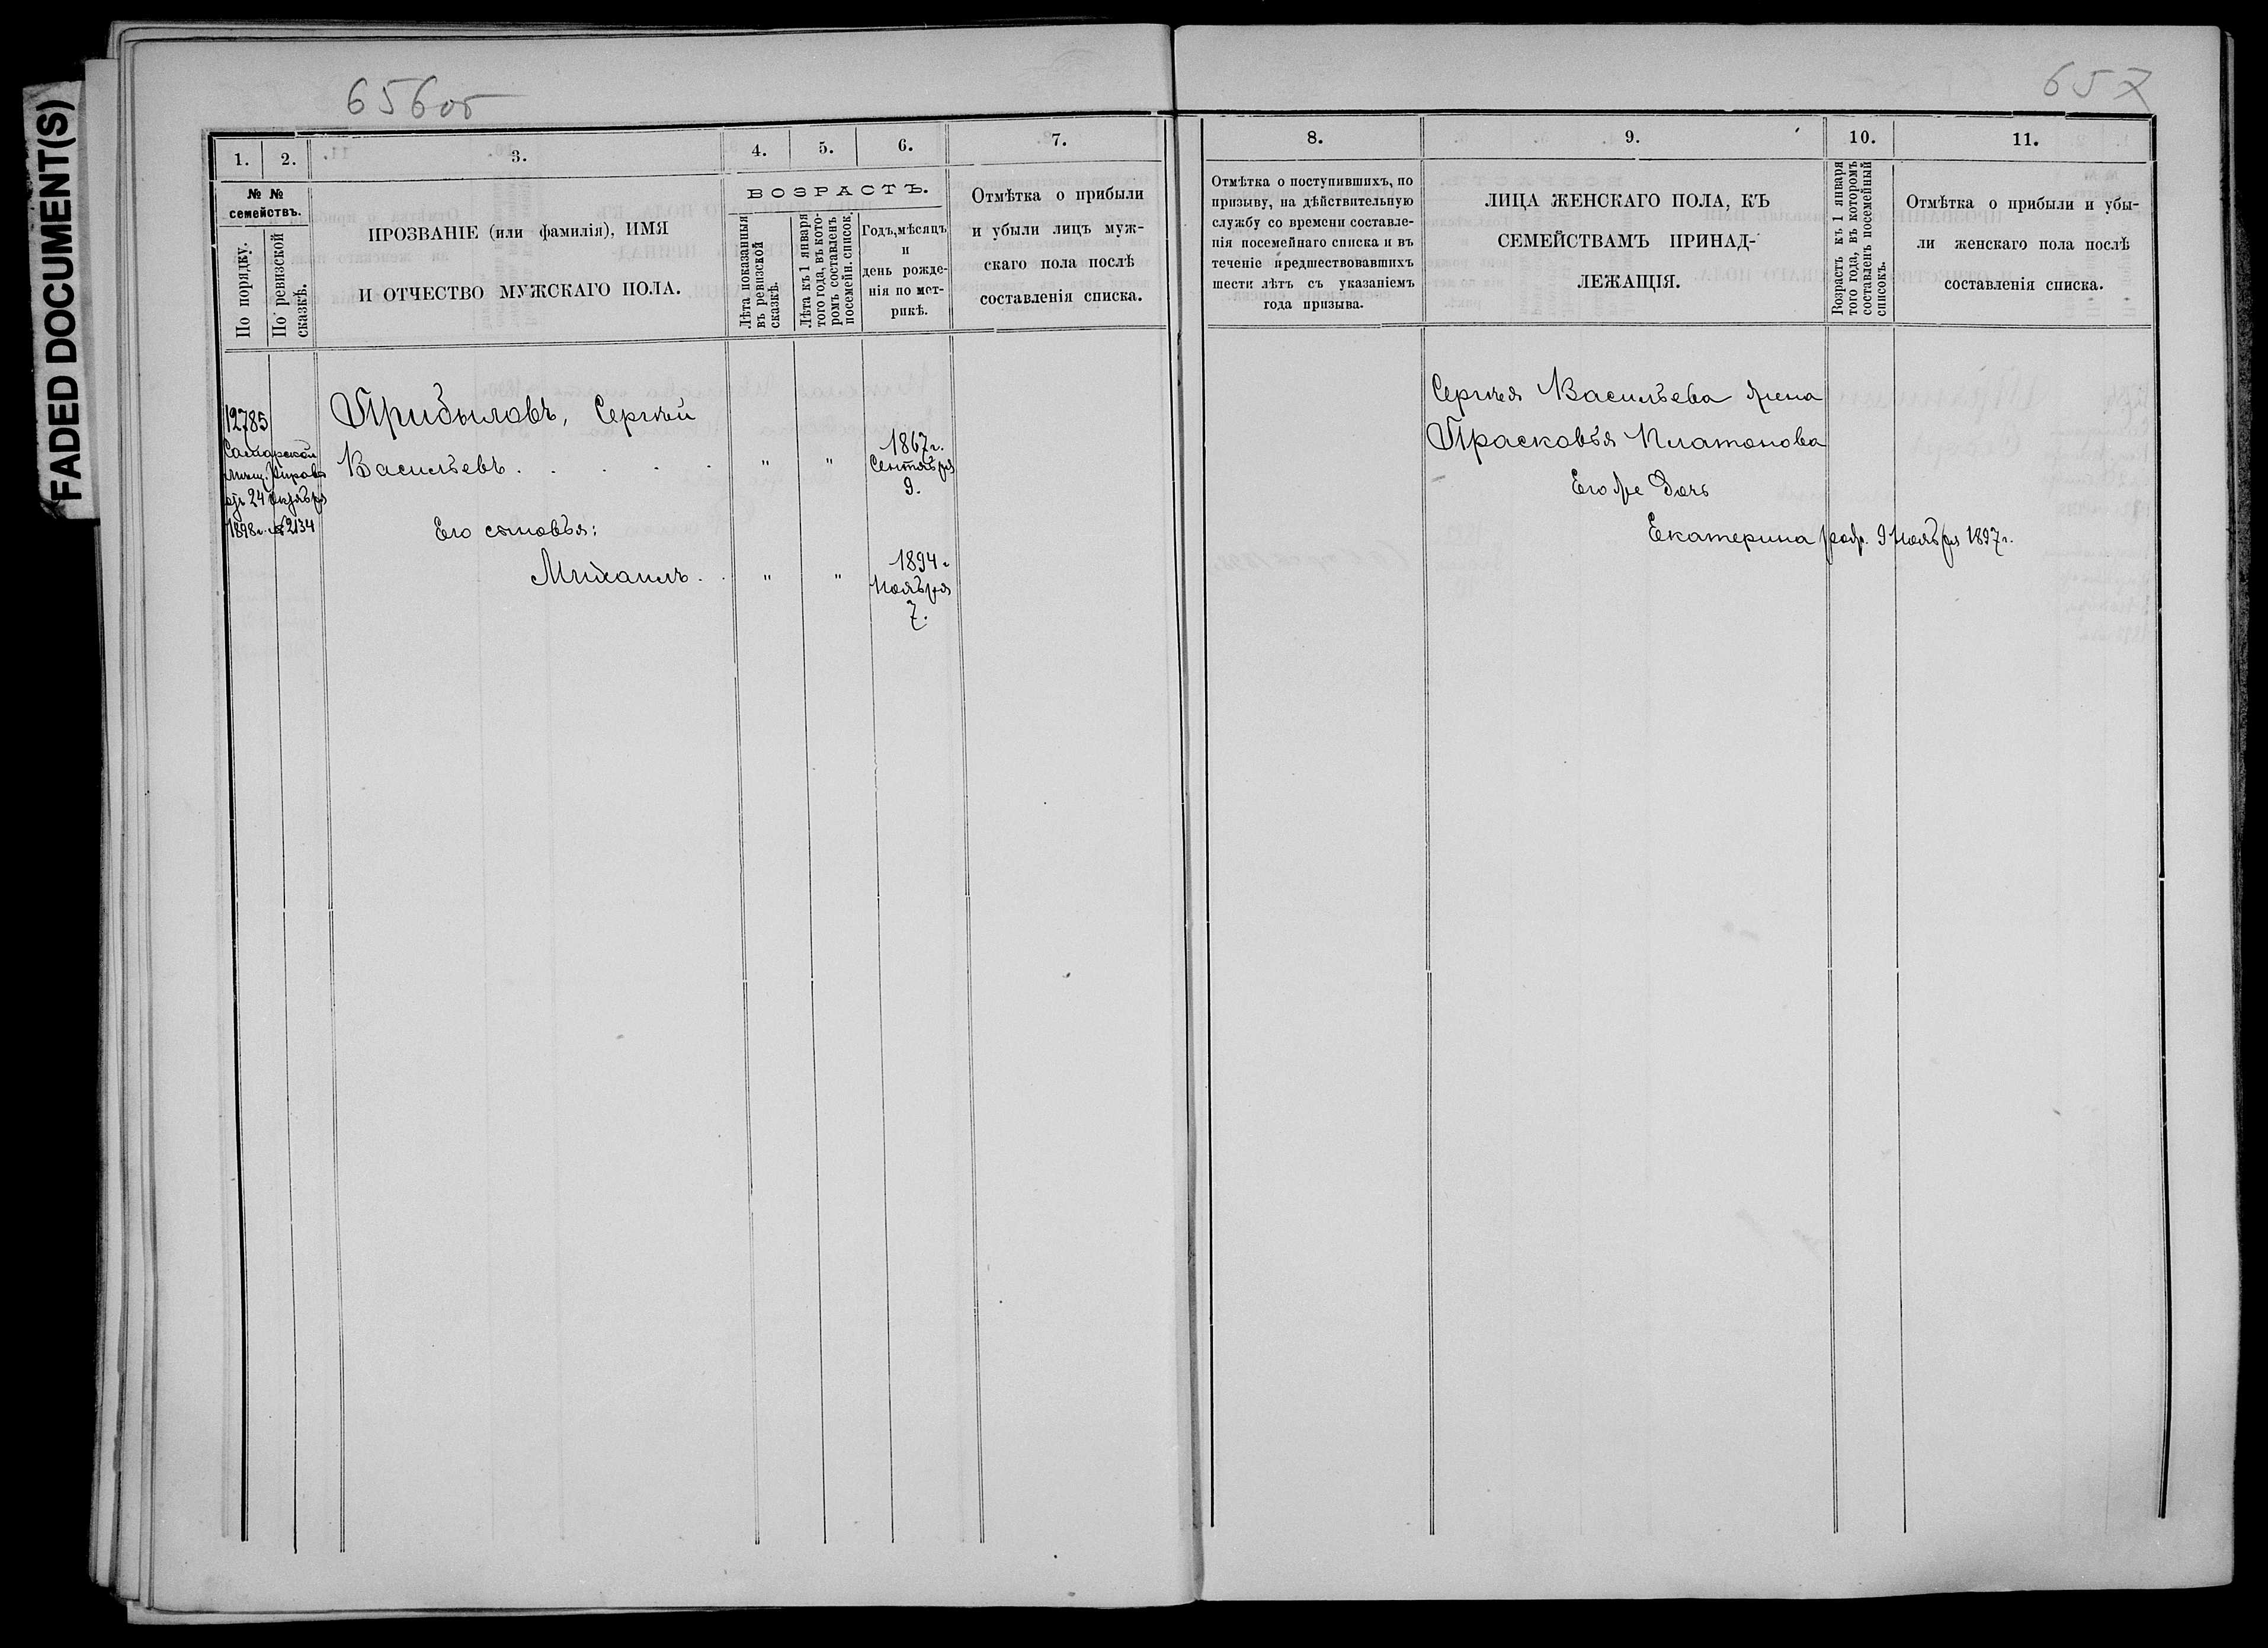 FADED DOCUMENT(S)
656об
1.
2.
3.
4.
5.
6.
7.
№ №
семействъ.
По порядку.
По ревизской
сказкѣ.
ПРОЗВАНІЕ (или фамилія), ИМЯ
И ОТЧЕСТВО МУЖСКАГО ПОЛА.
ВОЗРАСТЪ.
Лѣта показанныя
въ ревизской
сказкѣ.
Лѣта къ 1 января
того года, въ кото-
ромъ составленъ
посемейн. список.
Годъ, мѣсяцъ
и
день рожде-
нія по мет-
рикѣ.
Отмѣтка о прибыли
и убыли лицъ муж-
скаго пола послѣ
составленія списка.
12785
Самарской
мѣщ. Управы
отъ 24 октября
1898 г. № 2134
Прибыловъ, Сергѣй
Васильевъ. . . . . " " 1867 г.
Сентября
9.
Его сыновья:
Михаилъ. . " " 1894 г.
Ноября
7.
657
8.
9.
10.
11.
Отмѣтка о поступившихъ, по
призыву, на дѣйствительную
службу со времени составле-
нія посемейнаго списка и въ
теченіе предшествовавшихъ
шести лѣтъ съ указаніемъ
года призыва.
ЛИЦА ЖЕНСКАГО ПОЛА, КЪ
СЕМЕЙСТВАМЪ ПРИНАД-
ЛЕЖАЩІЯ.
Возрастъ къ 1 января
того года, въ которомъ
составленъ посемейный
списокъ.
Отмѣтка о прибыли и убы-
ли женскаго пола послѣ
составленія списка.
Сергѣя Васильева жена
Прасковья Платонова
Его же дочь
Екатерина рожд. 9 Ноября 1897 г.